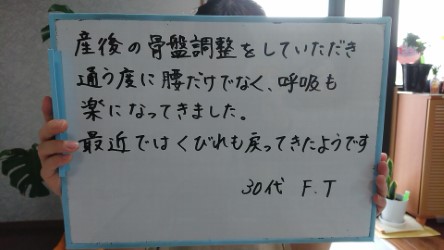 産後の骨盤調整をしていただき
通う度に腰だけでなく、呼吸も
楽になってきました。
最近ではくびれも戻ってきたようです
30代 F.T